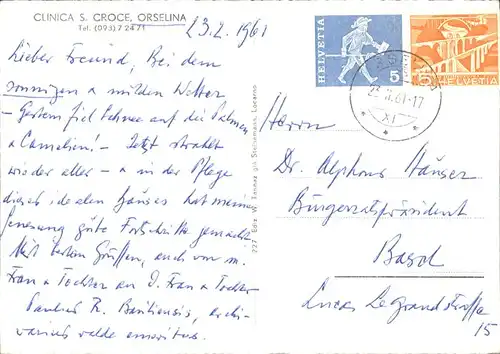 CLINICA S. CROCE, ORSELINA
Tel. (093) 7 24 71
23.2.1961
Lieber Freund, Bei dem
sonnigen & milden Wetter
- Gestern fiel Schnee auf die Palmen
& Camelien! - Jetzt strahlt
wieder alles - & in der Pflege
dieses idealen Hauses hat meine
Genesung gute Fortschritte gemacht
Mit besten Grüssen, auch von m.
Frau & Tochter an D. Frau & Tochter
Paulus R. Basiliensis, archi-
varius valde emeritus.
227 Ediz. W. Tannaz già Steinemann, Locarno
HELVETIA
5
5
HELVETIA
23.II.61-17
XI
Herrn
Dr. Alphons Häuser
Bürgerratspräsident
Basel
Lucas Legrandstrasse
15